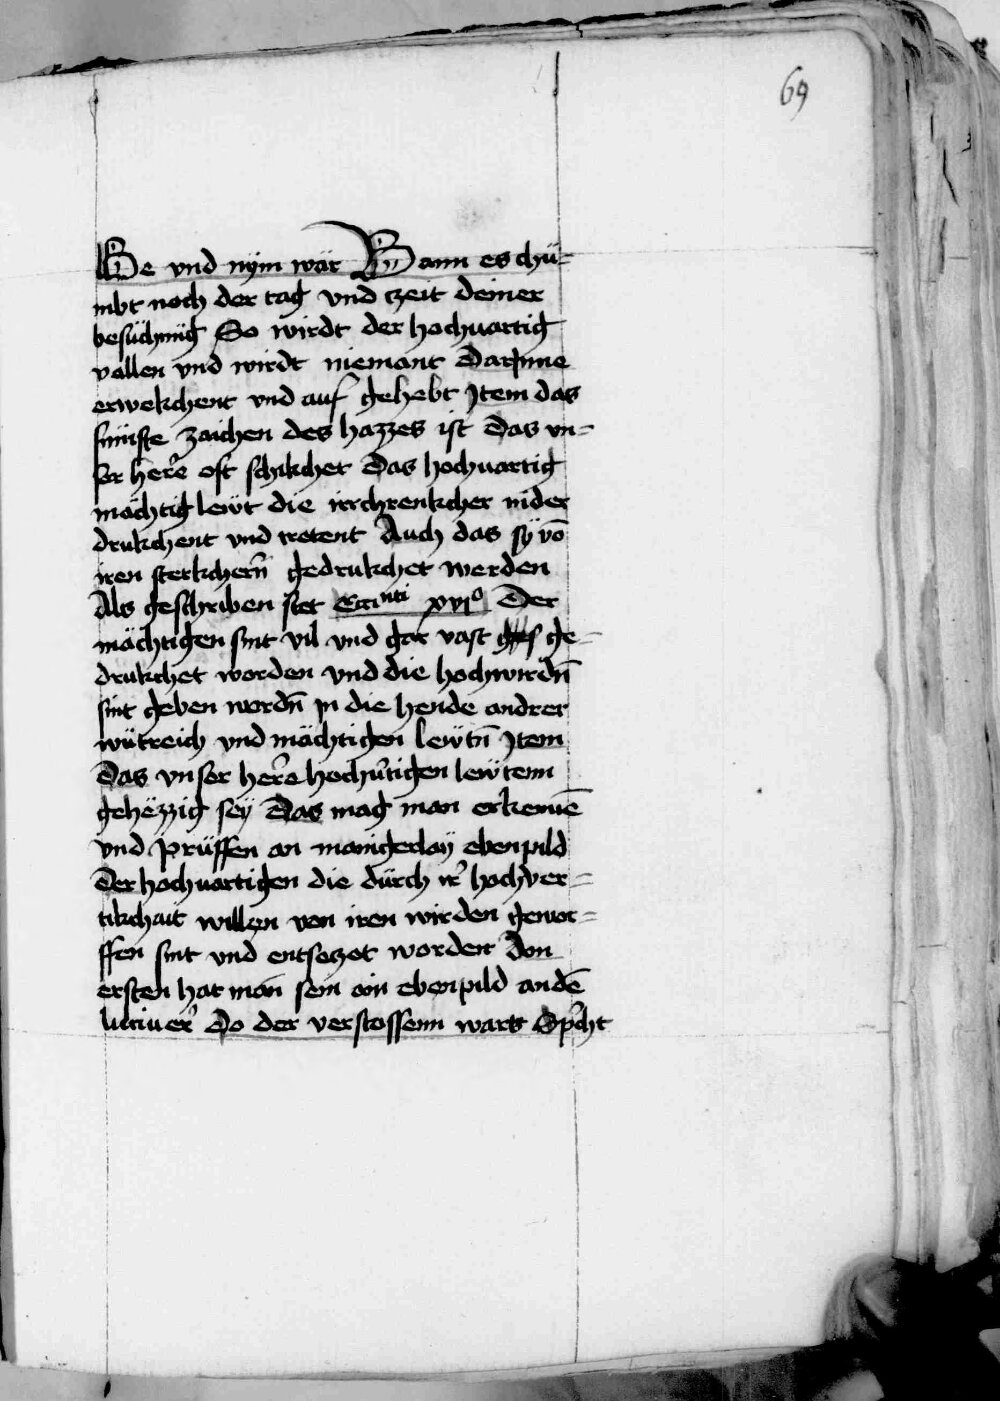 69
Ge vnd nÿm wär Wann es chü-
mbt noch der tag vnd tzeit deiner
besüchnüg So wirdt der hochuartig
vallen vnd wirdt niemant DarInne
erwekchent vnd auf gehebt Item das
fünfte zaichen des hazzes ist Das vn-
ser here oft schikchet Das hochuartig
mächtig lewt die
drukchent vnd tretent Auch das sÿ võ
iren sterkchern̄ gedrukchet werden
Als geschriben stet Ecciˢᵗⁱ xviº Der
mächtigen sint vil vnd gar vast ge-
drukchet worden vnd die hochwirdn̄
sint geben wordn̄ in die hende andrer
wütreich vnd mächtigen lewtn̄ Item
Das vnser here hochuͦtigen lewtenn
gehëzzig seÿ Das mag man erkennē
vnd prüffen an manigerlaÿ ebenpild
Der hochuartigen die dürch ir hochver-
tikchait willen von iren wirden gewor-
ffen sint vnd entseczet worden Den
ersten hat man sein ain ebenpild an dē
lucifer Do der verstossenn wart Spͥcht